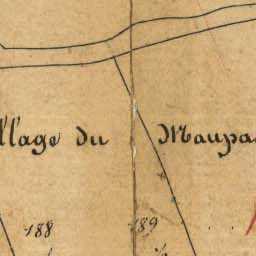 llage du Maupa
188 189